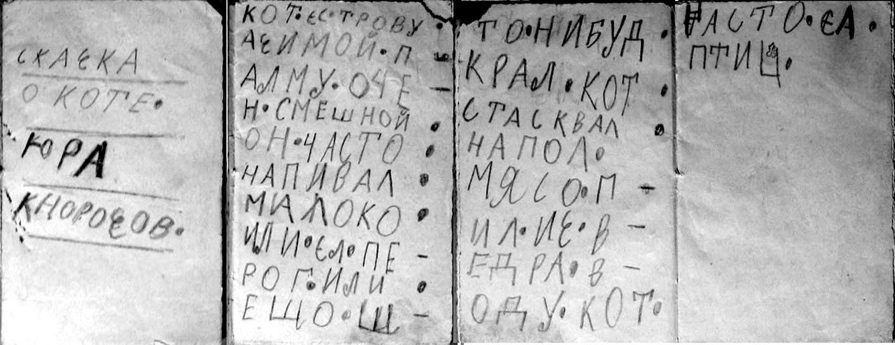 СКАԐКА
О КОТЕ•
ЮРА
КНОРОԐОВ•
КОТ•ЕС•ТРОВУ•
АԐИМОЙ•П –
АЛМУ•ОЧЕ –
Н•СМЕШНОЙ •
ОН•ЧАСТО •
НАПИВАЛ •
МАЛОКО •
ИЛИ•ЕЛ•ПЕ –
РОГ•ИЛИ •
ЕЩО•Ш –
ТО•НИБУД •
КРАЛ•КОТ •
СТАСКВАЛ •
НАПОЛ•
МЯСО•П –
ИЛ•ИԐ•В –
ЕДРА•В –
ОДУ•КОТ•
ЧАСТО•ЕЛ•
ПТИЦ•